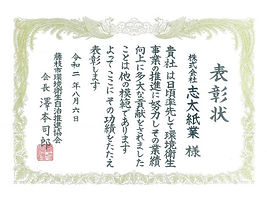 表彰状
株式会社 志太紙業 様
貴社は日頃率先して環境衛生
事業の推進に努力しその業績
向上に多大な貢献をされました
ことは他の模範であります
よってここにその功績をたたえ
表彰します
令和二年八月六日
藤枝市環境衛生自治推進協会
会長 澤本司郎